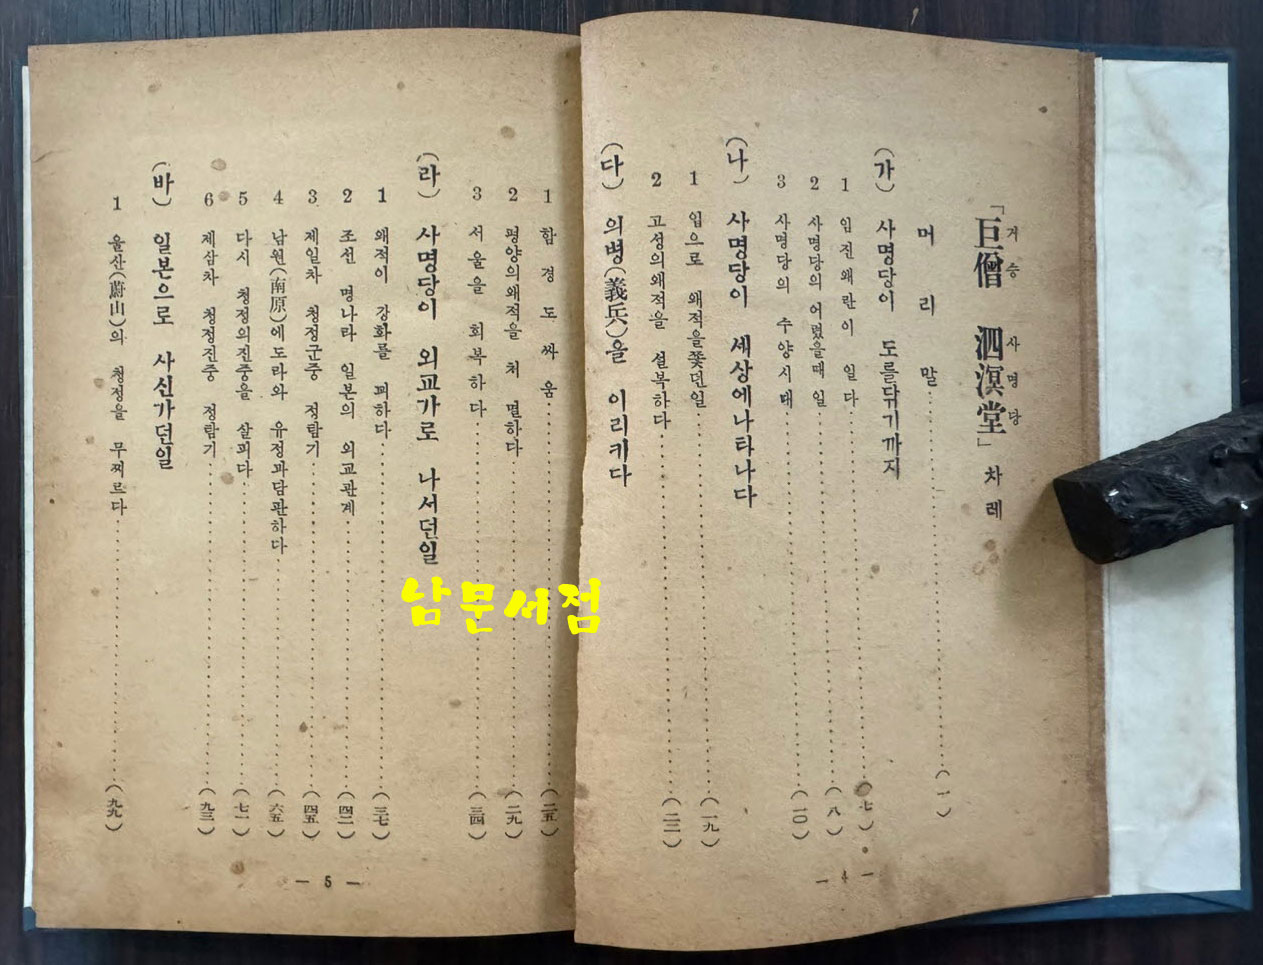 「巨僧 泗溟堂」 차례
거승 사명당
머리말 (一)
(가) 사명당이 도를닦기까지
1 임진왜란이 일다 (七)
2 사명당의 어렸을때 일 (八)
3 사명당의 수양시대 (一〇)
(나) 사명당이 세상에나타나다
1 입으로 왜적을쫓던일 (一九)
2 고성의왜적을 설복하다 (二二)
(다) 의병(義兵)을 이리키다
— 4 —
1 함경도싸움 (二五)
2 평양의왜적을 처멸하다 (二九)
3 서울을 회복하다 (三四)
(라) 사명당이 외교가로 나서던일
1 왜적이 강화를 꾀하다 (三七)
2 조선 명나라 일본의 외교관계 (四二)
3 제일차 청정군중 정탐기 (四五)
4 남원(南原)에도라와 유정과담관하다 (六五)
5 다시 청정의진중을 살피다 (七一)
6 제삼차 청정진중 정탐기 (九三)
(바) 일본으로 사신가던일
1 울산(蔚山)의 청정을 무찌르다 (九九)
— 5 —
남문서점